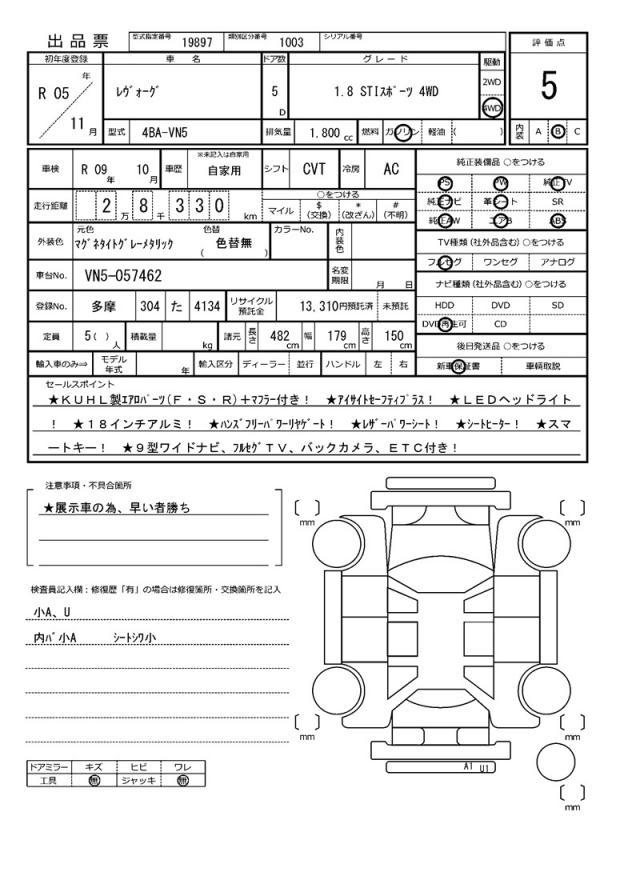 出品票 型式指定番号 19897 類別区分番号 1003 シリアル番号
評価点
5
内装 A B C
初年度登録 車名 ドア数 グレード 駆動
R 05 年 11 月
ﾚｳﾞｫｰｸﾞ
5 D
1.8 STIｽﾎﾟｰﾂ 4WD
2WD
4WD
型式 4BA-VN5 排気量 1,800 cc 燃料 ガソリン 軽油 ( )
車検 R 09 年 10 月 車歴 ※未記入は自家用 自家用 シフト CVT 冷房 AC
走行距離 2 万 8 千 3 3 0 km
○をつける
マイル $ (交換) * (改ざん) # (不明)
外装色 元色 ﾏｸﾞﾈﾀｲﾄｸﾞﾚｰﾒﾀﾘｯｸ 色替 ( 色替無 ) カラーNo. 内装色
車台No. VN5-057462 名変期限 月 日
登録No. 多摩 304 た 4134 リサイクル預託金 13,310円預託済 未預託
定員 5 ( ) 人 積載量 kg 諸元 長さ 482 cm 幅 179 cm 高さ 150 cm
輸入車のみ⇒ モデル年式 年 輸入区分 ディーラー 並行 ハンドル 左 右
純正装備品 ○をつける
PS PW 純正TV
純正ナビ 革シート SR
純正AW エアB ABS
TV種類 (社外品含む) ○をつける
フルセグ ワンセグ アナログ
ナビ種類 (社外品含む) ○をつける
HDD DVD SD
DVD再生可 CD
後日発送品 ○をつける
新車保証書 車輌取説
セールスポイント
★KUHL製ｴｱﾛﾊﾟｰﾂ(F・S・R)+マフラー付き！ ★ｱｲｻｲﾄｾｰﾌﾃｨﾌﾟﾗｽ！ ★LEDヘッドライト
！ ★18インチアルミ！ ★ﾊﾝｽﾞﾌﾘｰﾊﾟﾜｰﾘﾔｹﾞｰﾄ！ ★ﾚｻﾞｰﾊﾟﾜｰｼｰﾄ！ ★ｼｰﾄﾋｰﾀｰ！ ★スマ
ートキー！ ★9型ワイドナビ、ﾌﾙｾｸﾞTV、バックカメラ、ETC付き！
注意事項・不具合箇所
★展示車の為、早い者勝ち
検査員記入欄：修復歴「有」の場合は修復箇所・交換箇所を記入
小A、U
内ﾊﾞ小A ｼｰﾄｼﾜ小
ドアミラー キズ ヒビ ワレ
工具 無 ジャッキ 無
[ ] mm
[ ] mm
[ ] mm
[ ] mm
A1 U1
[ ] mm